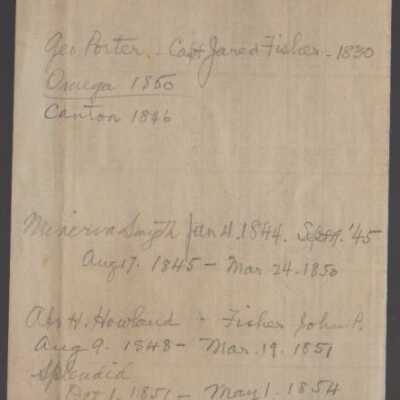 Geo Porter - Capt Jared Fisher - 1830
Omega 1850
Canton 1846
Minerva Smyth Jan 4. 1844. Sept 9. '45
Aug 17. 1845 - Mar. 24. 1850
Abr H. Howland - Fisher John P.
Aug 9. 1848 - Mar. 19. 1851
Splendid
Oct 1. 1851 - May 1. 1854